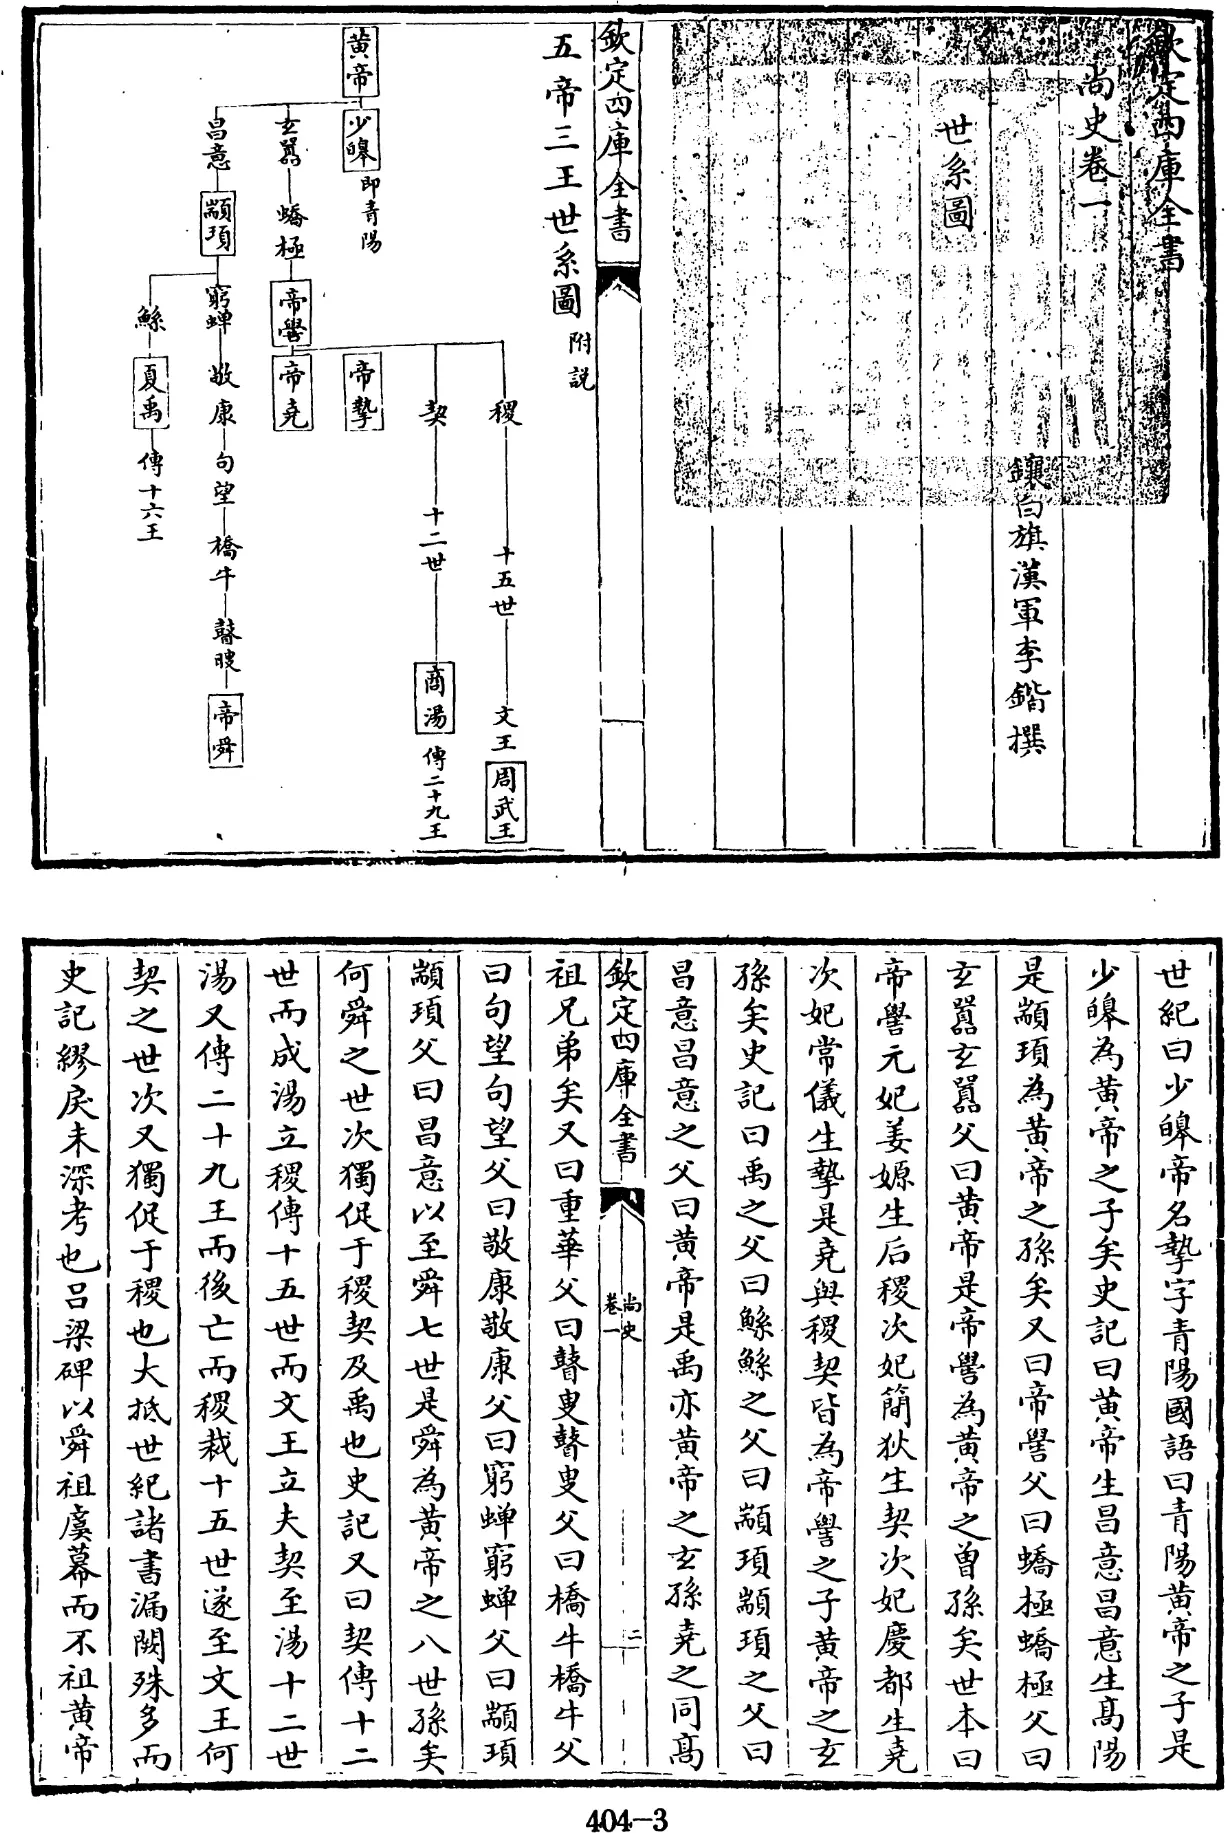 欽定四庫全書
尚史卷一
鑲白旗漢軍李鍇撰
世系圖
欽定四庫全書
五帝三王世系圖附說
稷 十五世 文王 周武王
契 十二世 商湯 傳二十九王
黃帝 少皞 即青陽
帝摯
玄囂 蟜極 帝嚳 帝堯
昌意 顓頊 窮蟬 敬康 句望 橋牛 瞽瞍 帝舜
鯀 夏禹 傳十六王
世紀曰少皞帝名摯字青陽國語曰青陽黃帝之子是
少皞為黃帝之子矣史記曰黃帝生昌意昌意生髙陽
是顓頊為黃帝之孫矣又曰帝嚳父曰蟜極蟜極父曰
玄囂玄囂父曰黃帝是帝嚳為黃帝之曽孫矣世本曰
帝嚳元妃姜嫄生后稷次妃簡狄生契次妃慶都生堯
次妃常儀生摯是堯與稷契皆為帝嚳之子黃帝之玄
孫矣史記曰禹之父曰鯀鯀之父曰顓頊顓頊之父曰
昌意昌意之父曰黃帝是禹亦黃帝之玄孫堯之同髙
欽定四庫全書
尚史
卷一
二
祖兄弟矣又曰重華父曰瞽叟瞽叟父曰橋牛橋牛父
曰句望句望父曰敬康敬康父曰窮蟬窮蟬父曰顓頊
顓頊父曰昌意以至舜七世是舜為黃帝之八世孫矣
何舜之世次獨促于稷契及禹也史記又曰契傳十二
世而成湯立稷傳十五世而文王立夫契至湯十二世
湯又傳二十九王而後亡而稷裁十五世遂至文王何
契之世次又獨促于稷也大抵世紀諸書漏闕殊多而
史記繆戾未深考也吕梁碑以舜祖虞幕而不祖黃帝
404-3